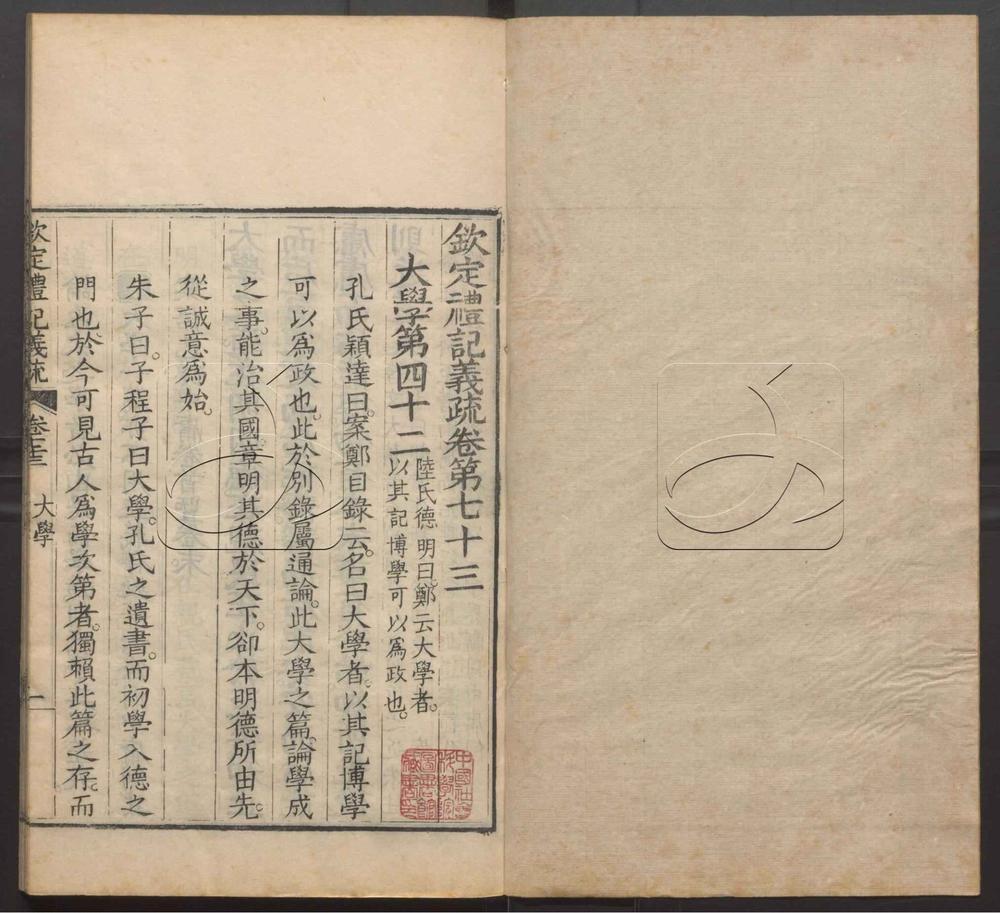 欽定禮記義疏卷第七十三
大學第四十二
陸氏德明曰鄭云大學者。
以其記博學可以爲政也。
孔氏穎達曰。案鄭目錄云。名曰大學者。以其記博學
可以爲政也。此於別錄屬通論。此大學之篇。論學成
之事。能治其國。章明其德於天下。卻本明德所由。先
從誠意爲始。
朱子曰。子程子曰大學。孔氏之遺書。而初學入德之
門也。於今可見古人爲學次第者。獨賴此篇之存。而
欽定禮記義疏 卷七十三 大學 一